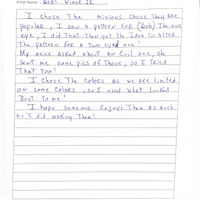 Artist Name: Bert Kimes Jr
I chose The Minions cause They are
popular, I saw a pattern for (Bob) The one
eye, I did That Then got The Idea To alter
The pattern for a Two eyed one!
My neice asked about an Evil one, she
sent me some pics of Those, so I Tried
That Too!
I chose The Colors as we are limited
on some Colors, so I used what Looked
Best To me!
I hope someone Enjoys Them as much
as I did making Them!